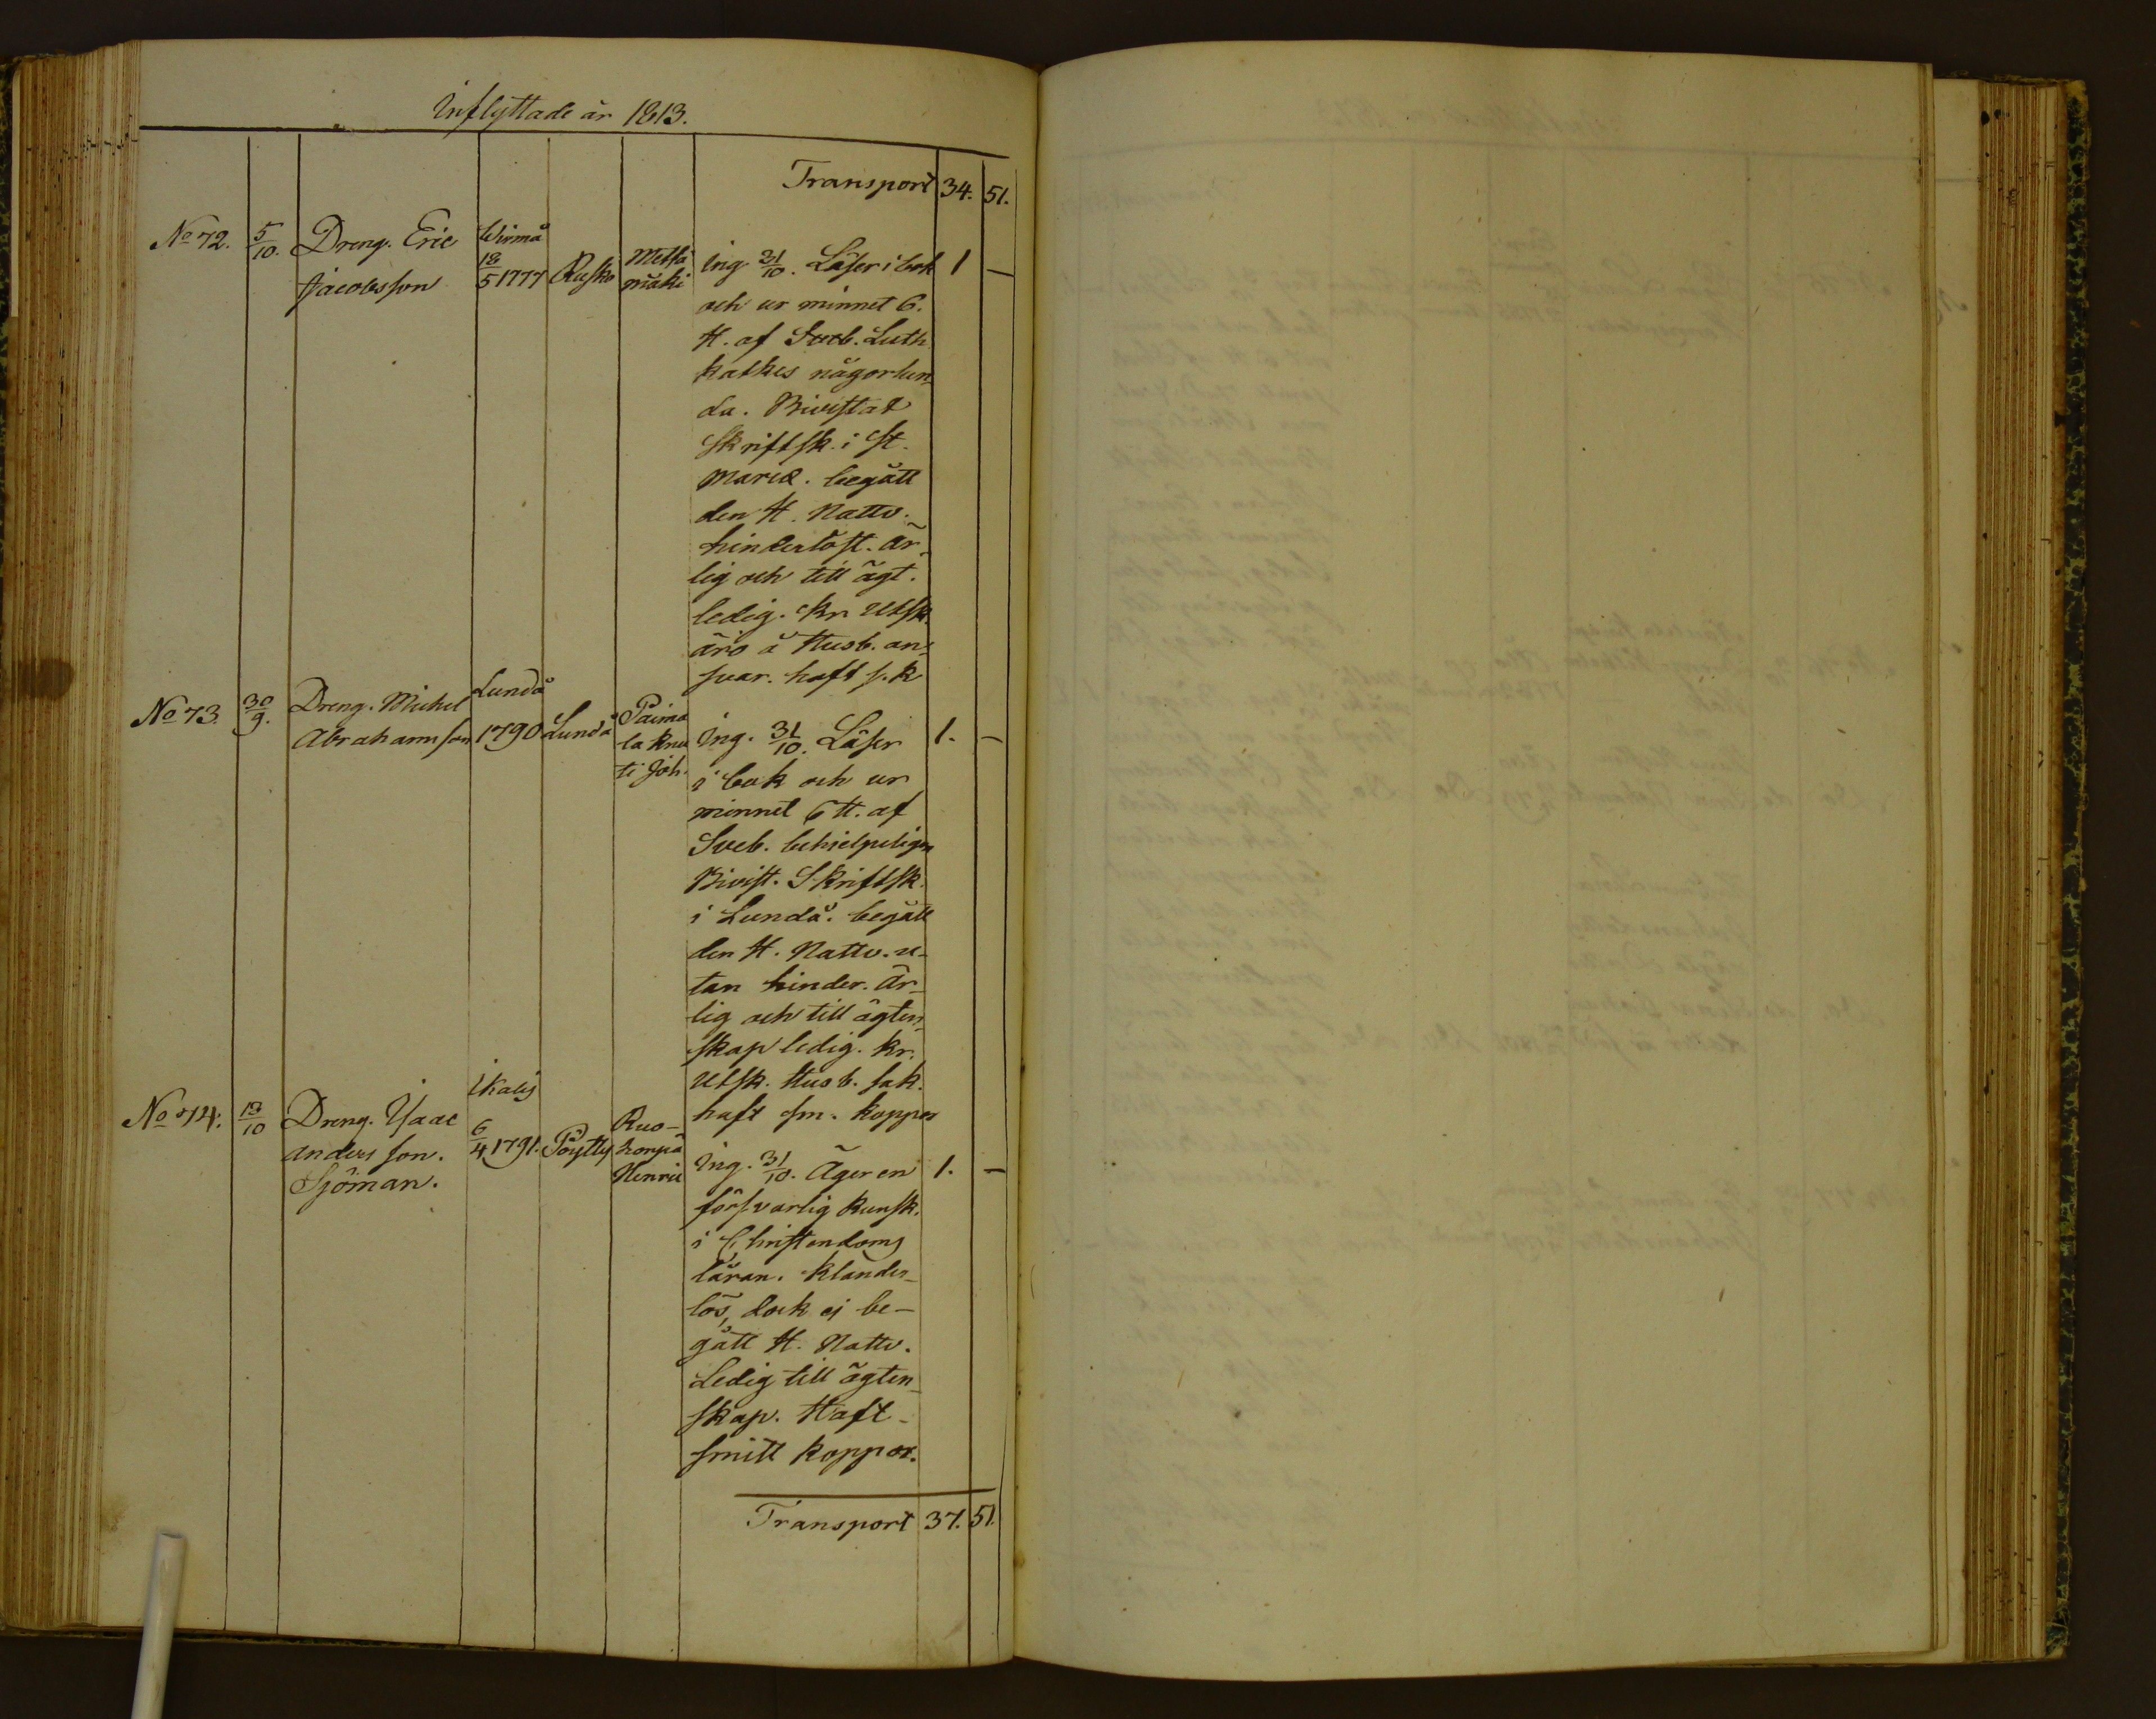 Inflyttade år 1813.
Transport 34. 51.
No 72. 5/10. Dreng. Eric Jacobsson Wirmå 18/5 1777 Rusko Metsä mäki
Ing 31/10. Läser i bok 1 —
och ur minnet 6.
H. af Sveb. Luth.
katkes någorlun-
da. Bivistat
skriftsk. i St.
Mariæ. begått
den H. Nattv.
hinderlöst. Är-
lig och till ägt.
ledig. Kr. Utsk.
äro å Husb. an-
svar. haft s. k
No 73. 30/9. Dreng. Michel Abrahamsson Lundå 1790 Lundå Paima la Knu ti Joh.
Ing. 31/10. Läser 1. —
i bok och ur
minnet 6 H. af
Sveb. behielpeligen
Bivist. Skriftsk.
i Lundå. begått
den H. Nattv. u-
tan hinder. Är-
lig och till ägten-
skap ledig. Kr.
Utsk. Husb. sak.
haft sm. koppor
No 74. 13/10 Dreng. Isaac Andersson. Sjöman. Ikalis 6/4 1791. Pöytty Ruo- honpä Henric
Ing. 31/10. Äger en 1. —
försvarlig kunsk.
i Christendoms
läran. Klander-
lös, dock ej be-
gått H. Nattv.
Ledig till ägten-
skap. Haft
smitt koppor.
Transport 37. 51.